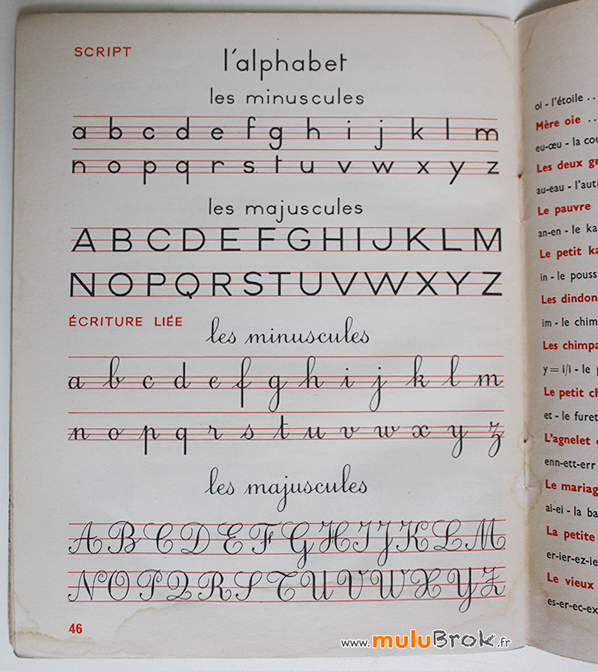 SCRIPT
l'alphabet
les minuscules
a b c d e f g h i j k l m
n o p q r s t u v w x y z
les majuscules
A B C D E F G H I J K L M
N O P Q R S T U V W X Y Z
ÉCRITURE LIÉE
les minuscules
a b c d e f g h i j k l m
n o p q r s t u v w x y z
les majuscules
A B C D E F G H I J K L M
N O P Q R S T U V W X Y Z
46
oi - l'étoile . .
Mère oie . .
eu-œu - la
Les deux
au-eau -
Le pauvre
an-en - le
Le petit
in - le
Les dindon
im - le
Les
y = i/i - le
Le petit
et - le furet
L'agnelet
enn-ett-err
Le
ai-ei - la
La petite
er-ier-ez
Le vieux
es-er-ec-ex
www.muluBrok.fr